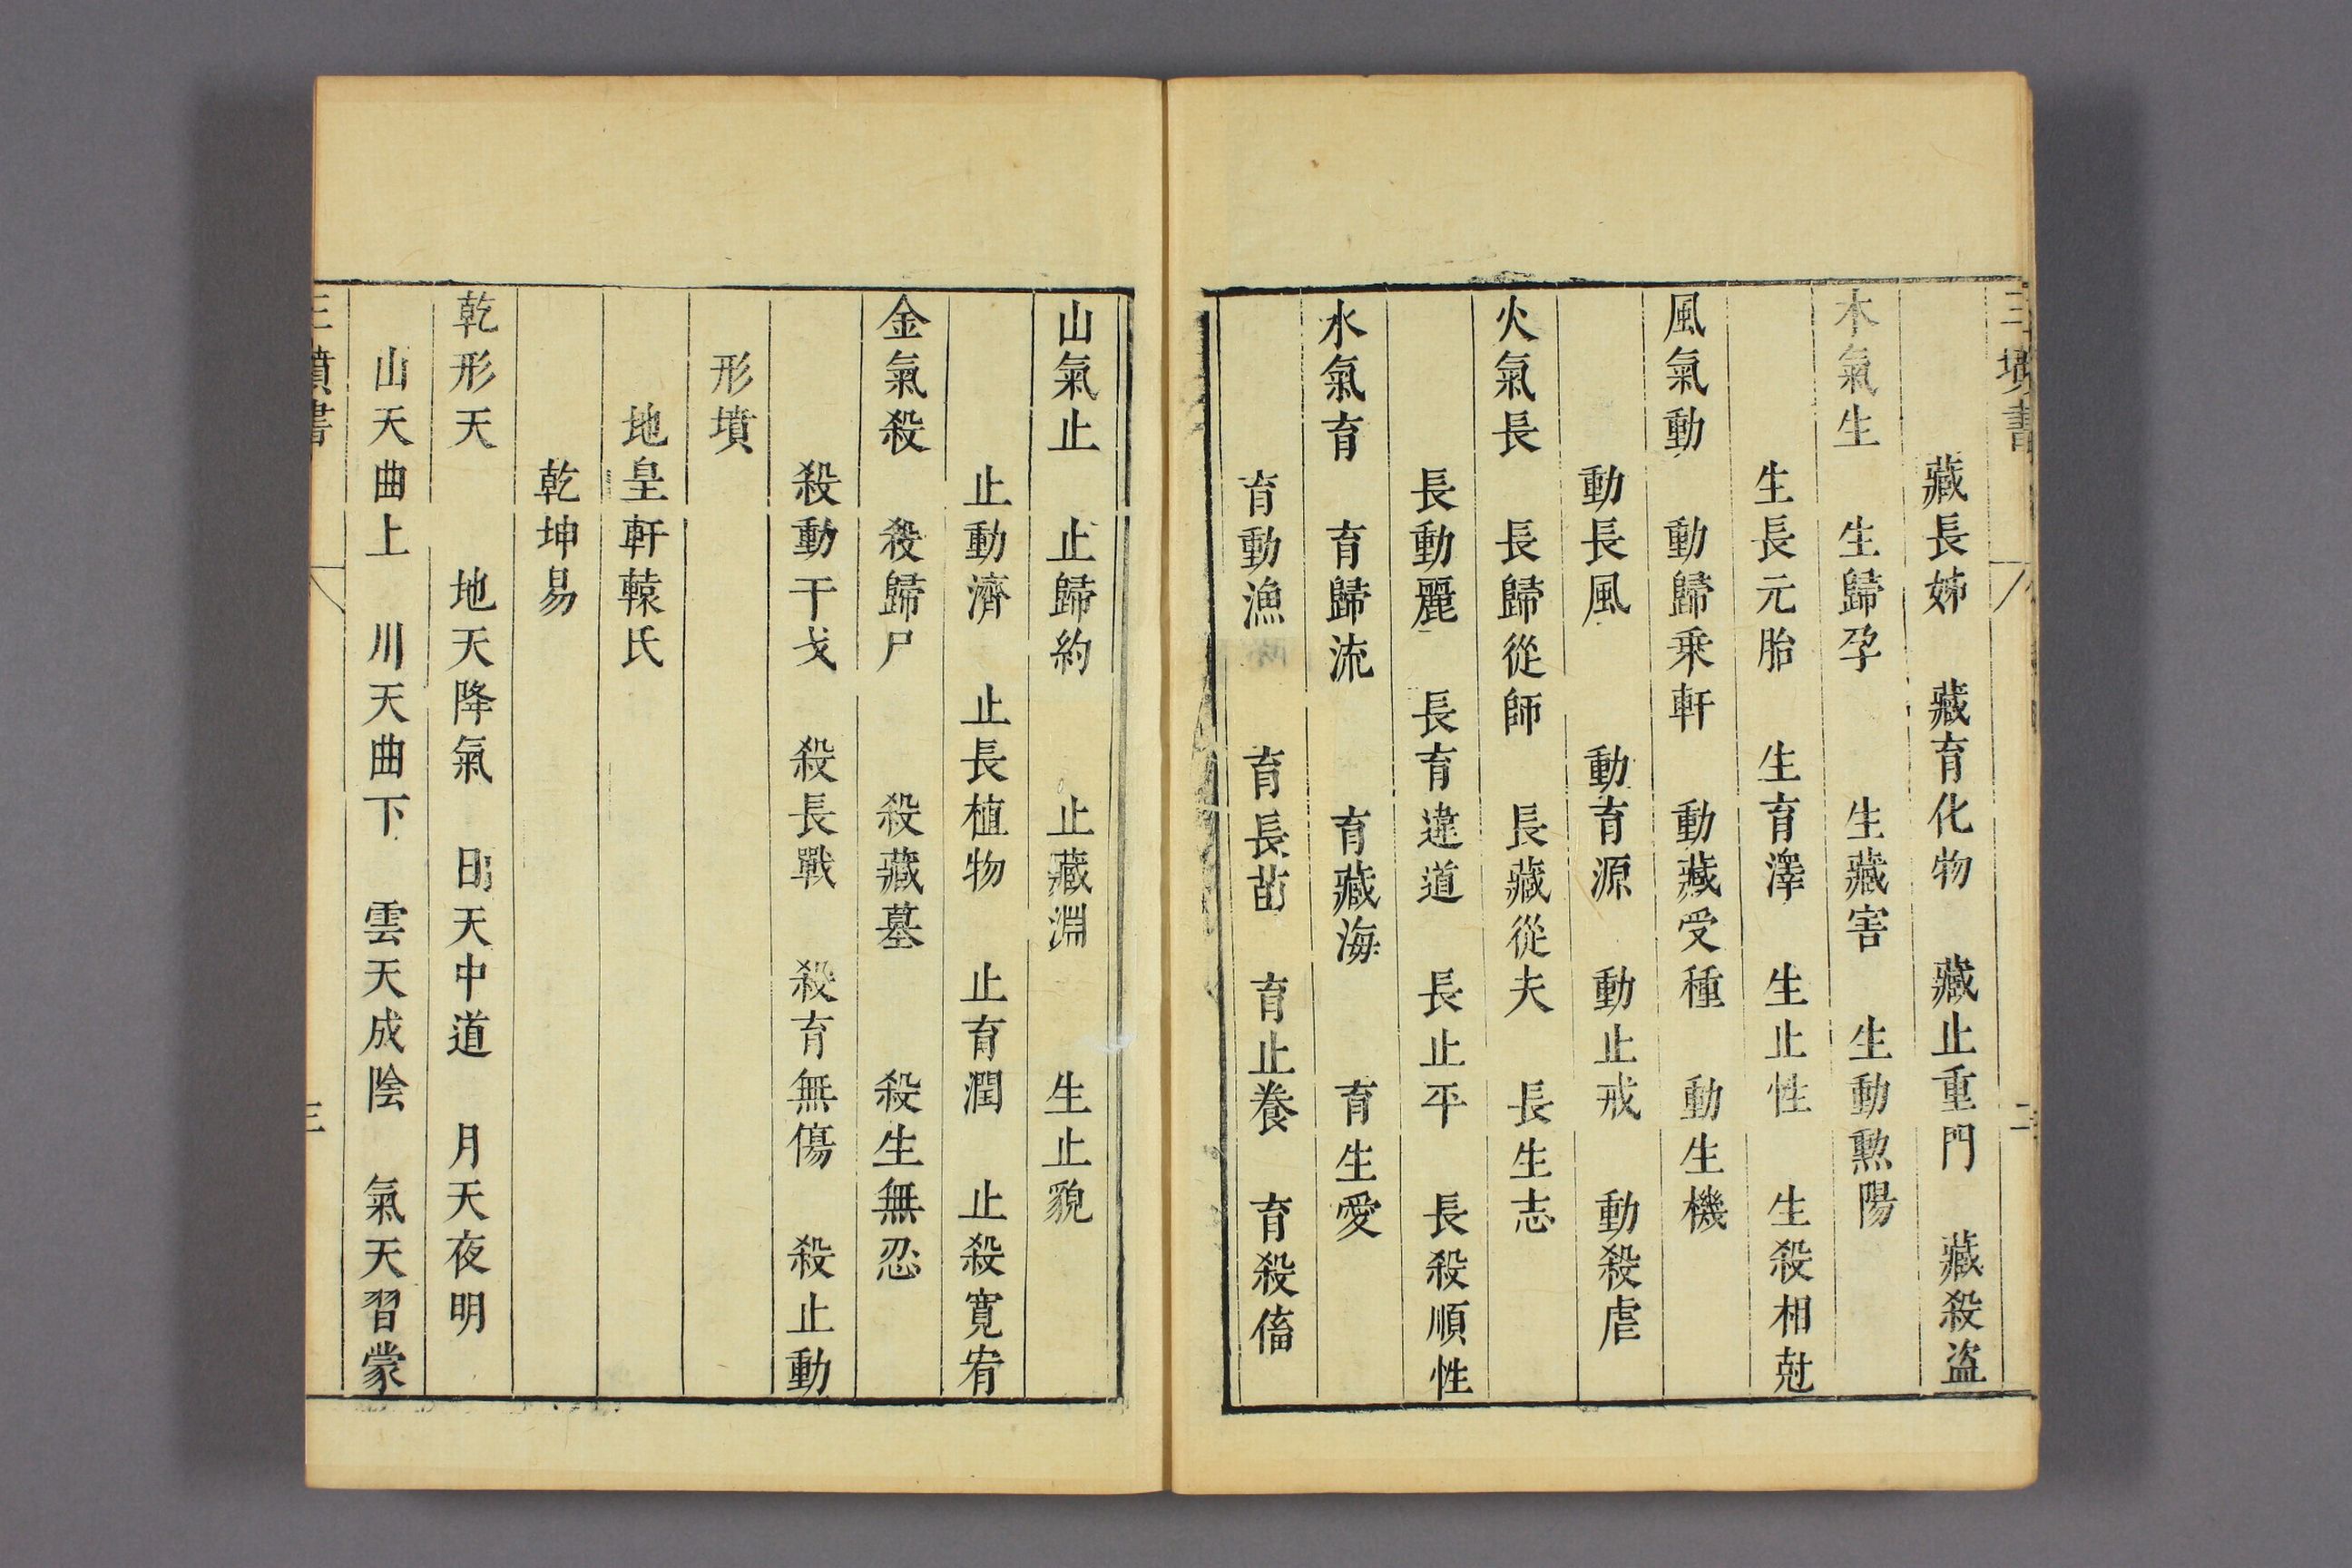 三墳書 二
藏長姊 藏育化物 藏止重門 藏殺盜
木氣生 生歸孕 生藏害 生動勲陽
生長元胎 生育澤 生止性 生殺相尅
風氣動 動歸乗軒 動藏受種 動生機
動長風 動育源 動止戒 動殺虐
火氣長 長歸從師 長藏從夫 長生志
長動麗 長育違道 長止平 長殺順性
水氣育 育歸流 育藏海 育生愛
育動漁 育長苗 育止養 育殺偹
山氣止 止歸約 止藏淵 生止貌
止動濟 止長植物 止育潤 止殺寛宥
金氣殺 殺歸尸 殺藏墓 殺生無忍
殺動干戈 殺長戰 殺育無傷 殺止動
形墳
地皇軒轅氏
乾坤易
乾形天 地天降氣 日天中道 月天夜明
山天曲上 川天曲下 雲天成陰 氣天習蒙
三墳書 三